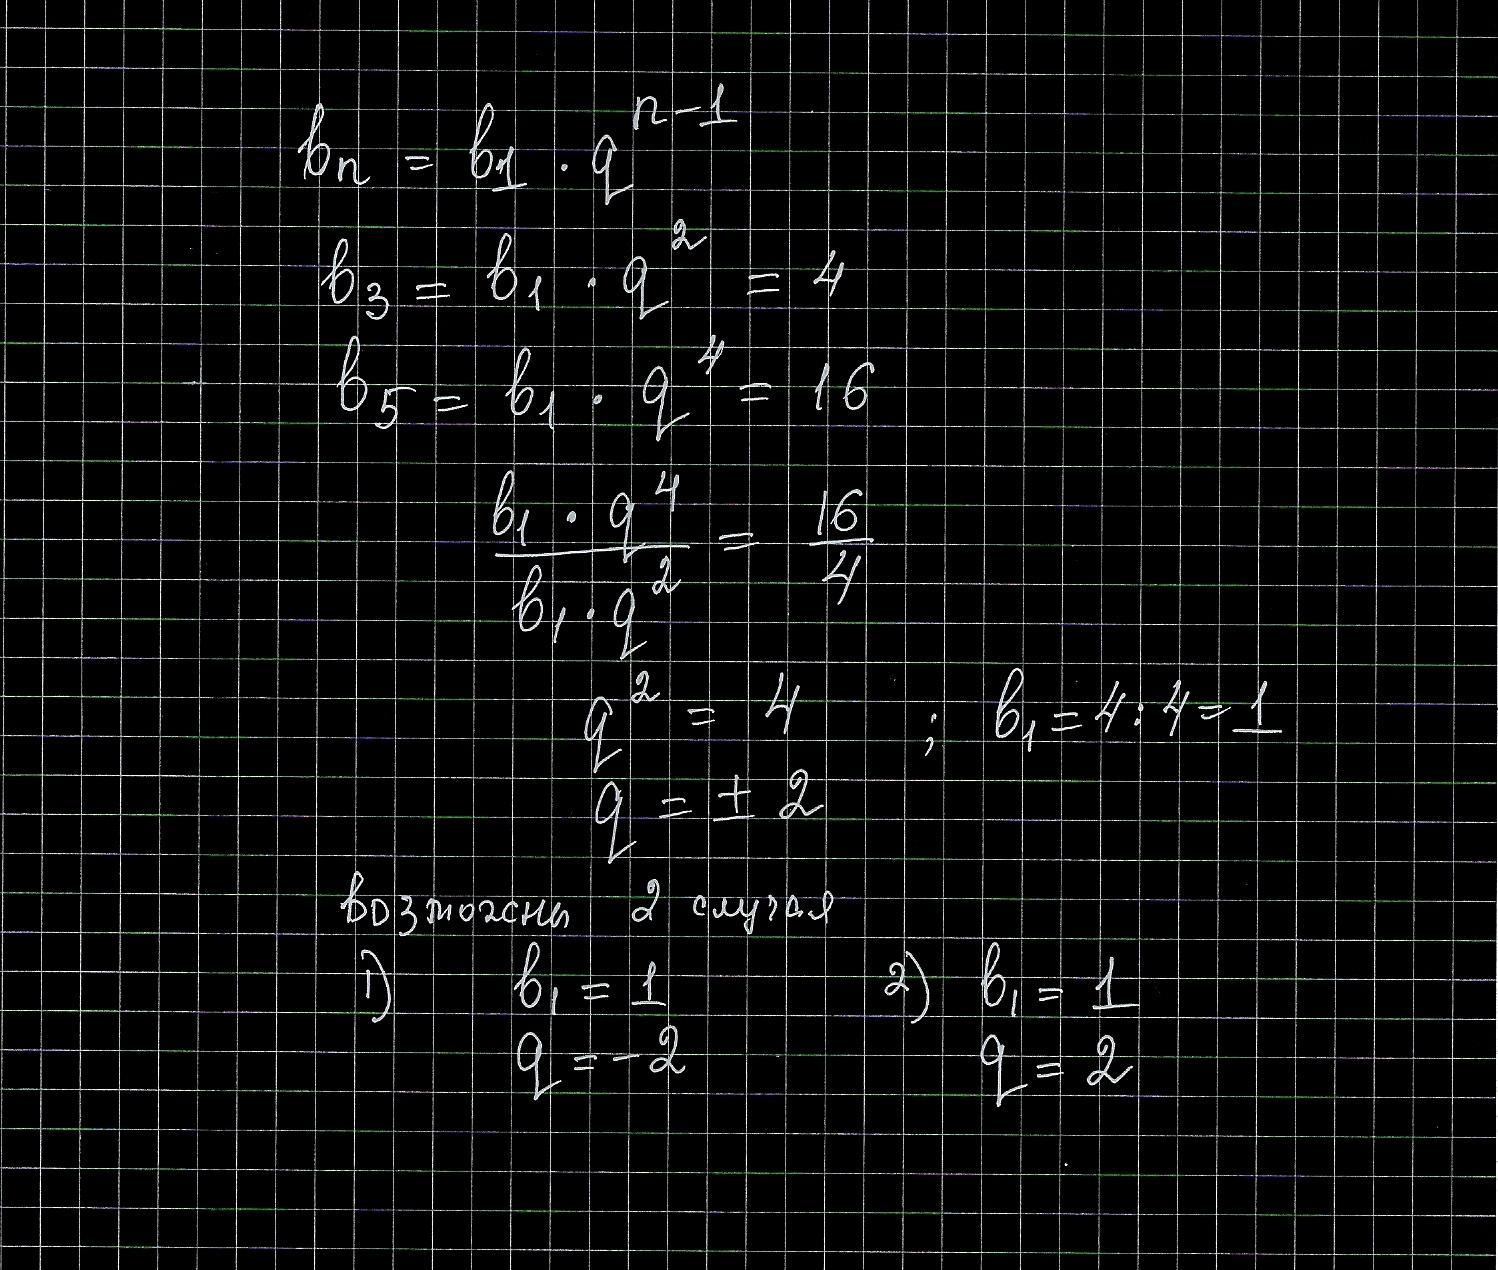 bn = b1 · q^(n-1)
b3 = b1 · q^2 = 4
b5 = b1 · q^4 = 16
(b1 · q^4)/(b1 · q^2) = 16/4
q^2 = 4 ; b1 = 4 : 4 = 1
q = ± 2
возможны 2 случая
1) b1 = 1 2) b1 = 1
q = -2 q = 2